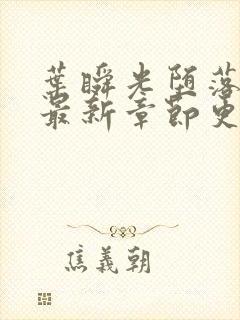 葉瞬光堕落
最新章節史
焦義朝